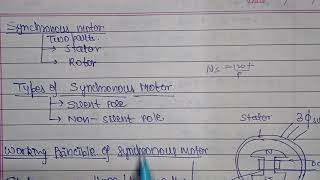 Synchronous motor
Two parts.
→ Stator
→ Rotor
Types of Synchronous Motor
→ Silent pole
→ Non-silent pole
Ns = 120f/P
Stator
3Φ
Working Principle of Synchronous motor
N